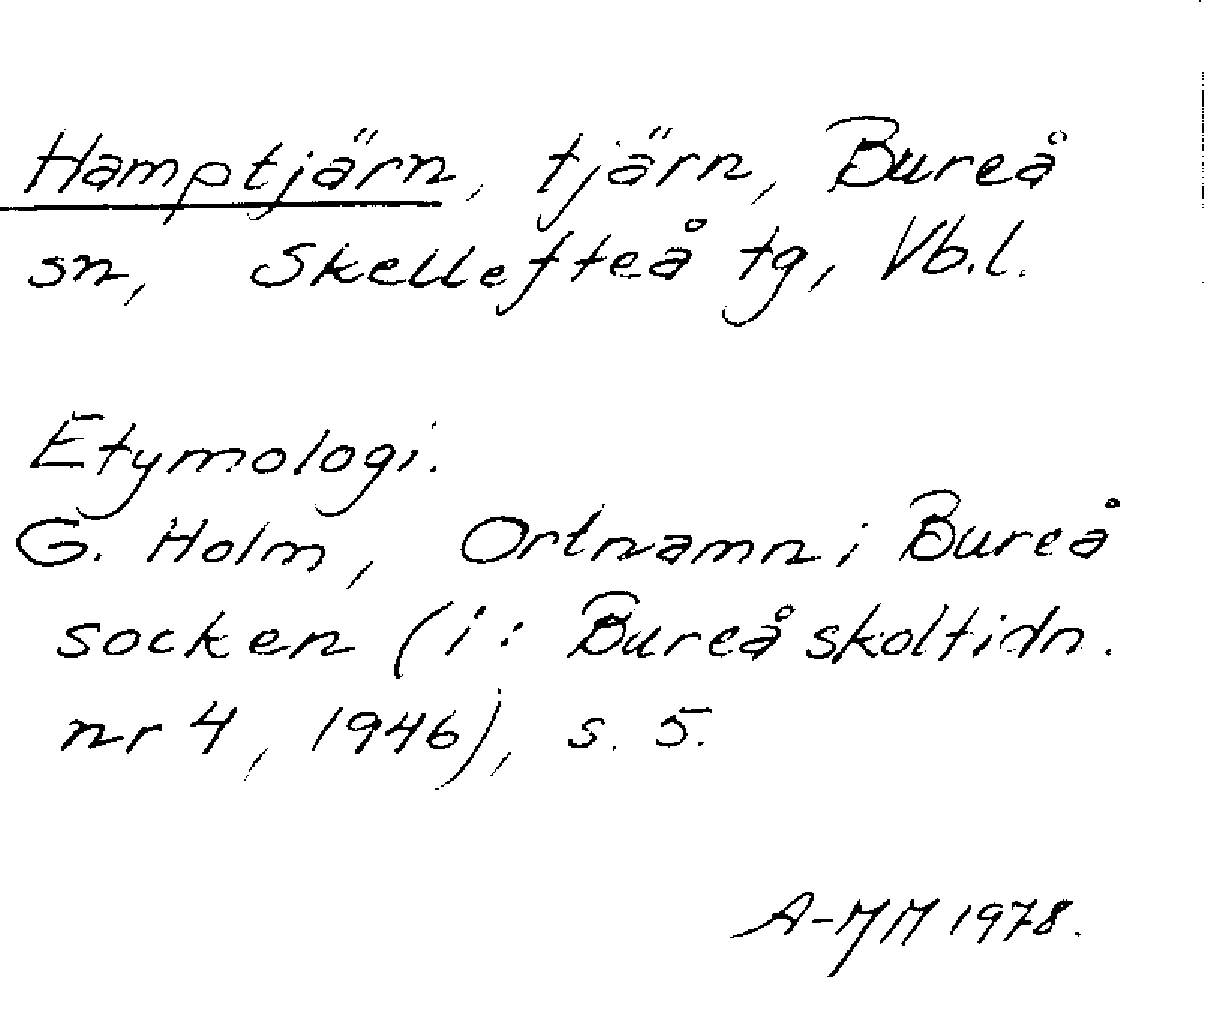 Hamptjärn, tjärn, Bureå
sn, Skellefteå tg, Vb.l.
Etymologi.
G. Holm, Ortnamn i Bureå
socken (i: Bureå skoltidn.
nr 4, 1946), s. 5.
A-MM 1978.